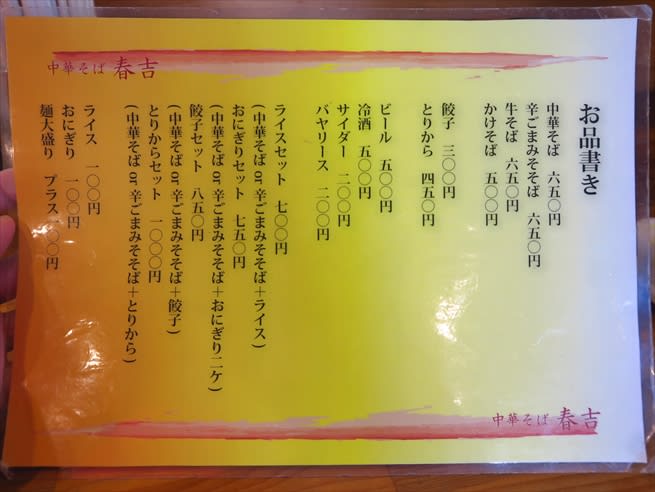 中華そば 春吉
お品書き
中華そば 六五〇円
辛ごまみそそば 六五〇円
牛そば 六五〇円
かけそば 五〇〇円
餃子 三〇〇円
とりから 四五〇円
ビール 五〇〇円
冷酒 五〇〇円
サイダー 二〇〇円
バヤリース 二〇〇円
ライスセット 七〇〇円
(中華そば or 辛ごまみそそば+ライス)
おにぎりセット 七五〇円
(中華そば or 辛ごまみそそば+おにぎり二ケ)
餃子セット 八五〇円
(中華そば or 辛ごまみそそば+餃子)
とりからセット 一〇〇〇円
(中華そば or 辛ごまみそそば+とりから)
ライス 一〇〇円
おにぎり 一〇〇円
麺大盛り プラス一〇〇円
中華そば 春吉